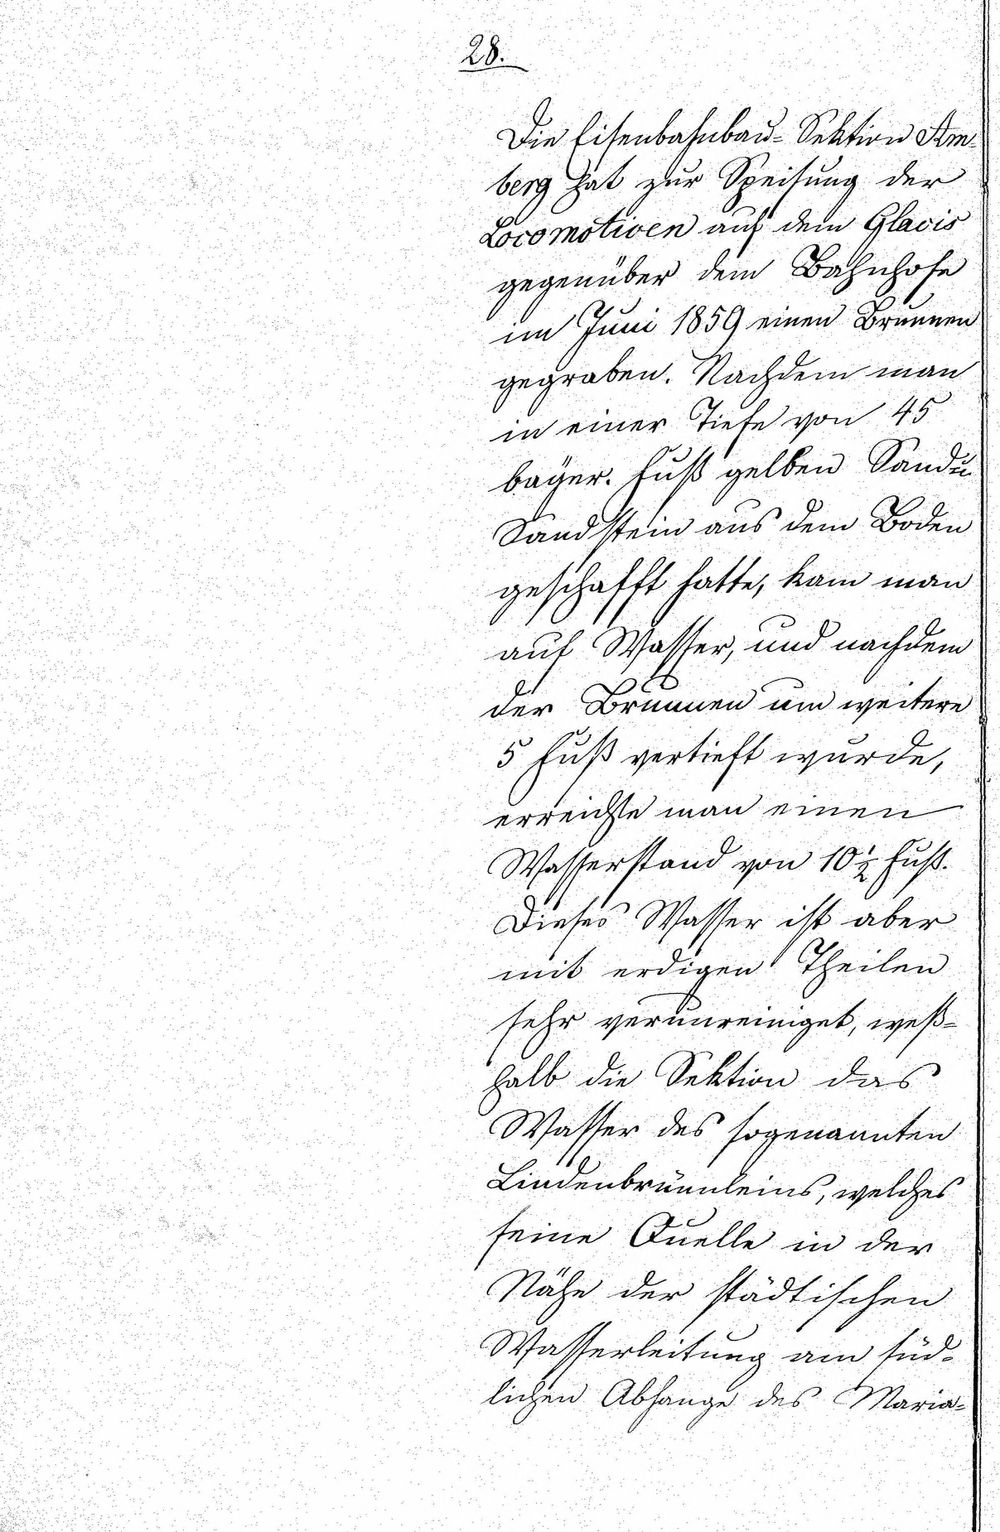 28.
Die Eisenbahnbau-Sektion Am-
berg hat zur Speisung der
Locomotiven auf dem Glacis
gegenüber dem Bahnhofe
im Juni 1859 einen Brunnen
gegraben. Nachdem man
in einer Tiefe von 45
bayer. Fuß gelben Sand u.
Sandstein aus dem Boden
geschafft hatte, kam man
auf Wasser, und nachdem
der Brunnen um weitere
5 Fuß vertieft wurde,
erreichte man einen
Wasserstand von 10 1/2 Fuß.
Dieses Wasser ist aber
mit erdigen Theilen
sehr verunreiniget, weß-
halb die Sektion das
Wasser des sogenannten
Lindenbrünnleins, welches
seine Quelle in der
Nähe der städtischen
Wasserleitung am süd-
lichen Abhange des Maria-